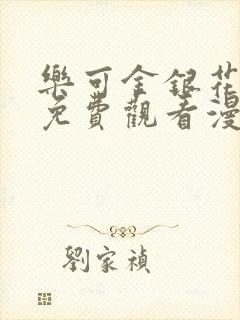 樂可金銀花
免費觀看漫
劉家禎